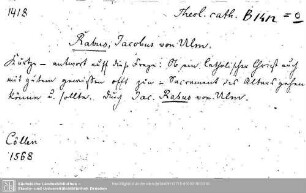 1418
Theol. cath. B 1412 = e
Rabus, Jacobus von Ulm.
Kurtze - antwort auff diese Frage: Ob ein Catholischer Christ auch
mit gutem gewissen offt zur - Sacrament des Altars gehen
könne u. sollte. durch Jac. Rabus von Ulm.
Cöllen
1568
Sächsische Landesbibliothek -
Staats- und Universitätsbibliothek Dresden